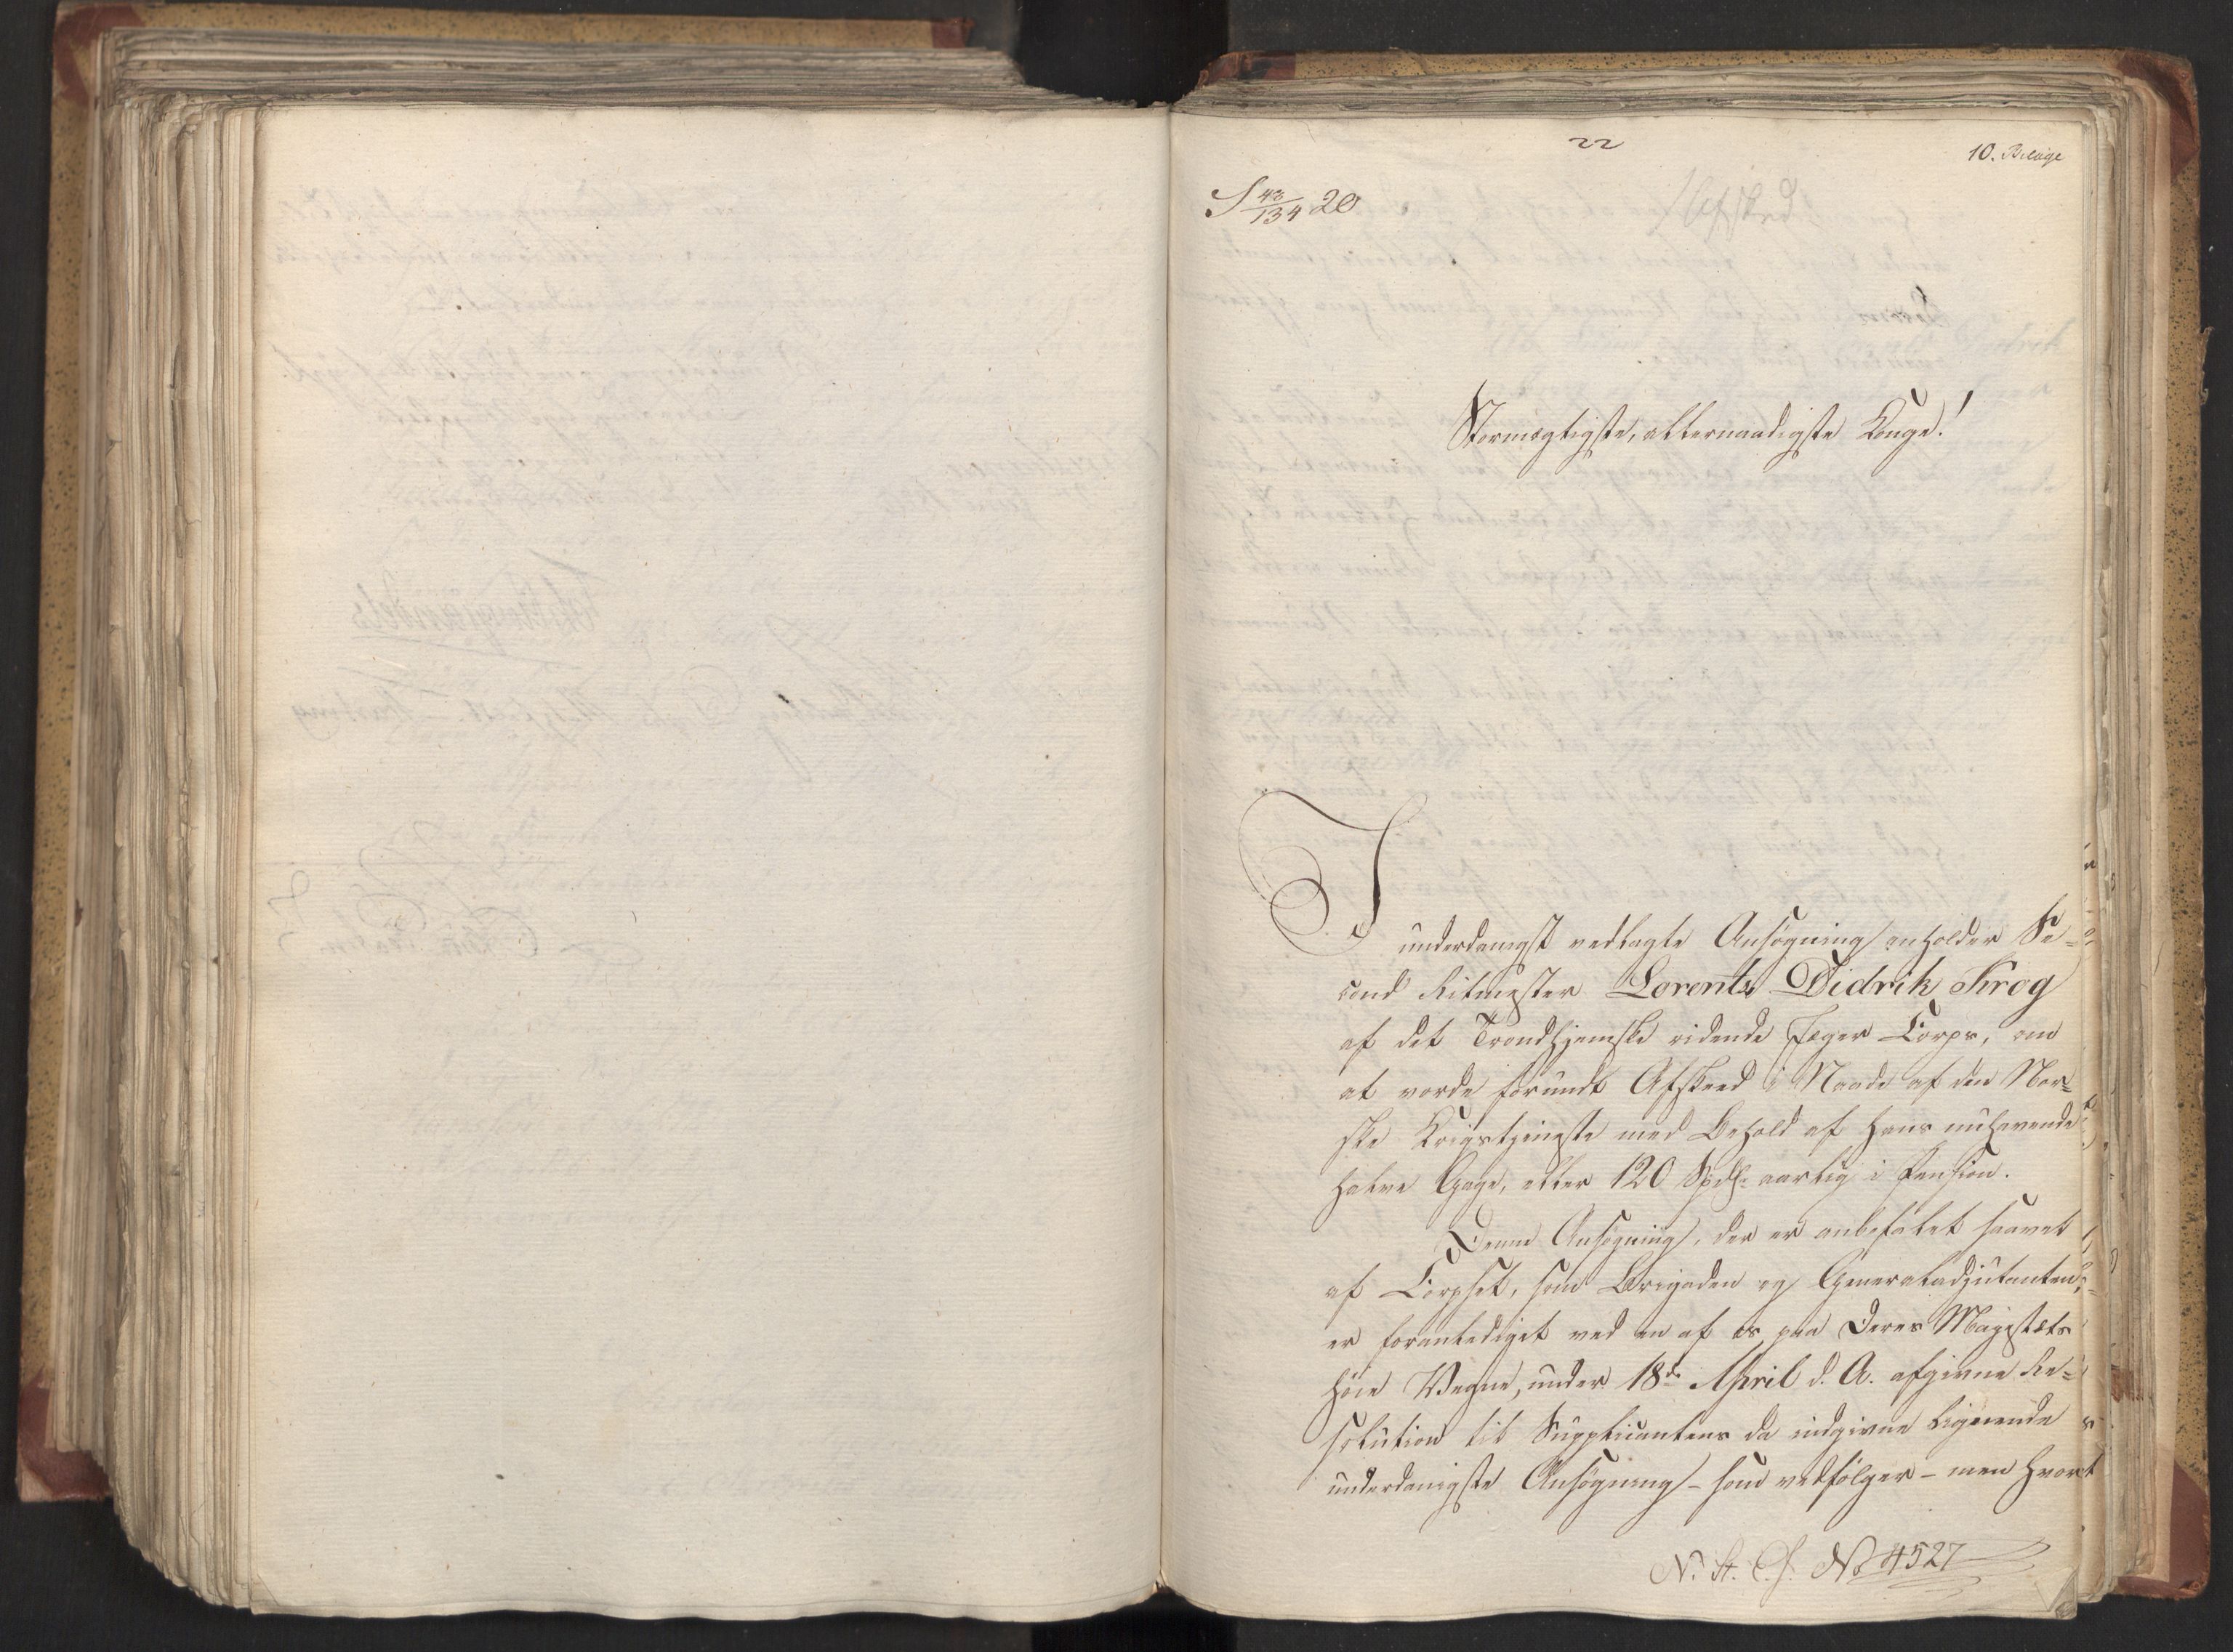 22
10. Bilage
S 43/134 20
Afsked
Stormægtigste, allernaadigste Konge!
I underdanigst vedlagte Ansøgning anholder Se=
cond Ritmester Lorents Didrik Krog
af det Trondhjemske ridende Jæger-Corps, om
at vorde forundt Afskeed i Naade af den Nor=
ske Krigstjeneste med Behold af hans nuhavende
halve Gage, eller 120 Spd. aarlig i Pension.
Denne Ansøgning, der er anbefalet saavel
af Corpset, som Brigaden og Generaladjutanten,
er foranlediget ved en af os paa Deres Majestæts
høie Vegne, under 18de April d. A. afgivne Re=
solution til Supplicantens da indgivne lignende
underdanigste Ansøgning - som vedfølger - men hvori
N. St. C. J. No 4527